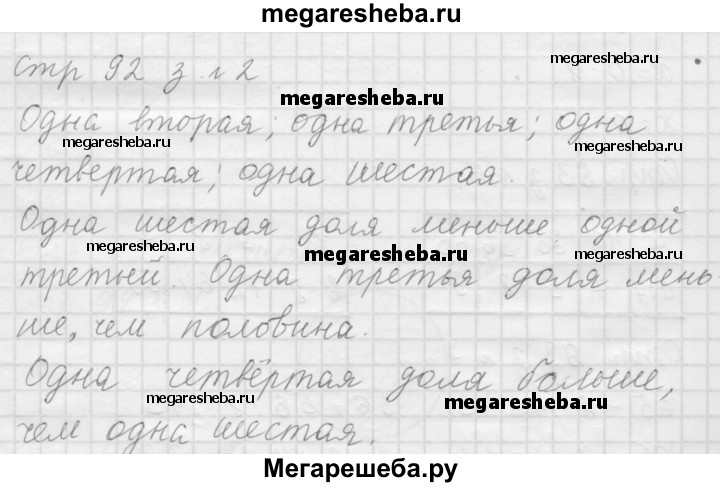 megaresheba.ru
стр 92 з. 2
megaresheba.ru
megaresheba.ru
Одна вторая; одна третья; одна
megaresheba.ru
megaresheba.ru
четвертая; одна шестая.
Одна шестая доля меньше одной
megaresheba.ru
megaresheba.ru
megaresheba.ru
третьей. Одна третья доля мень
ше, чем половина.
Одна четвёртая доля больше,
megaresheba.ru
megaresheba.ru
чем одна шестая.
Мегарешеба.ру